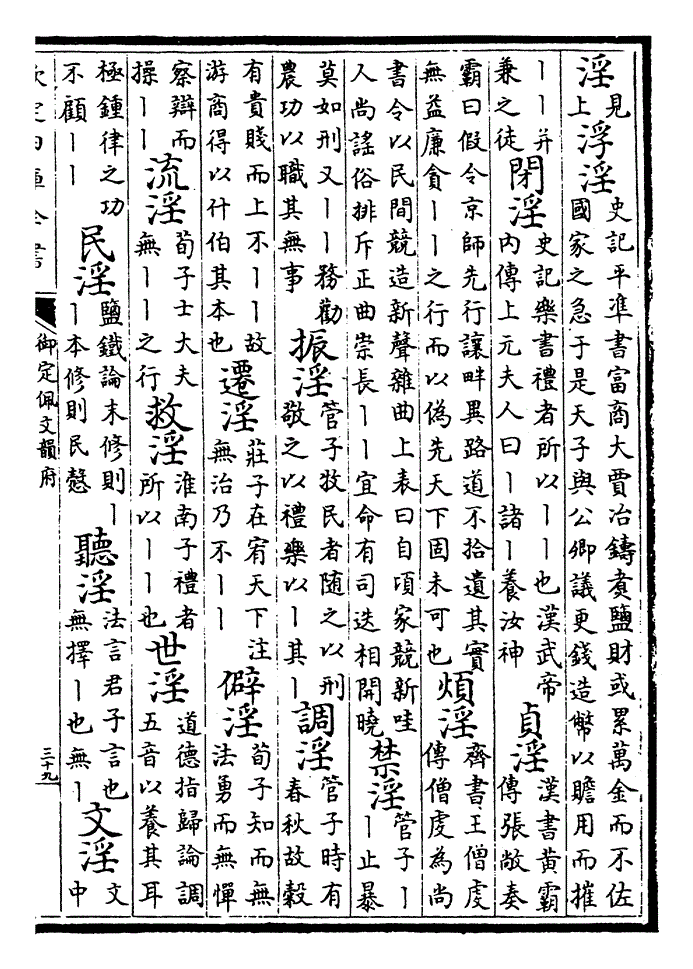 淫見上浮淫史記平準書富商大賈冶鑄煑鹽財或累萬金而不佐國家之急于是天子與公卿議更錢造幣以贍用而摧
丨丨并兼之徒閉淫史記樂書禮者所以丨丨也漢武帝内傳上元夫人曰丨諸丨養汝神貞淫漢書黄霸傳張敞奏
霸曰假令京師先行讓畔異路道不拾遺其實無益廉貪丨丨之行而以偽先天下固未可也煩淫齊書王僧虔傳僧虔為尚
書令以民間競造新聲雜曲上表曰自頃家競新哇人尚謡俗排斥正曲崇長丨丨宜命有司迭相開曉禁淫管子丨丨止暴
莫如刑又丨丨務勸農功以職其無事振淫管子牧民者随之以刑敬之以禮樂以丨其丨調淫管子時有春秋故穀
有貴賤而上不丨丨故游商得以什伯其本也遷淫莊子在宥天下注無治乃不丨丨僻淫荀子知而無法勇而無憚
察辯而操丨丨流淫荀子士大夫無丨丨之行救淫淮南子禮者所以丨丨也世淫道德指歸論調五音以養其耳
極鍾律之功不顧丨丨民淫鹽鐵論末修則丨丨本修則民慤聽淫法言君子言也無擇丨也無丨文淫文中
御定佩文韻府
三十九